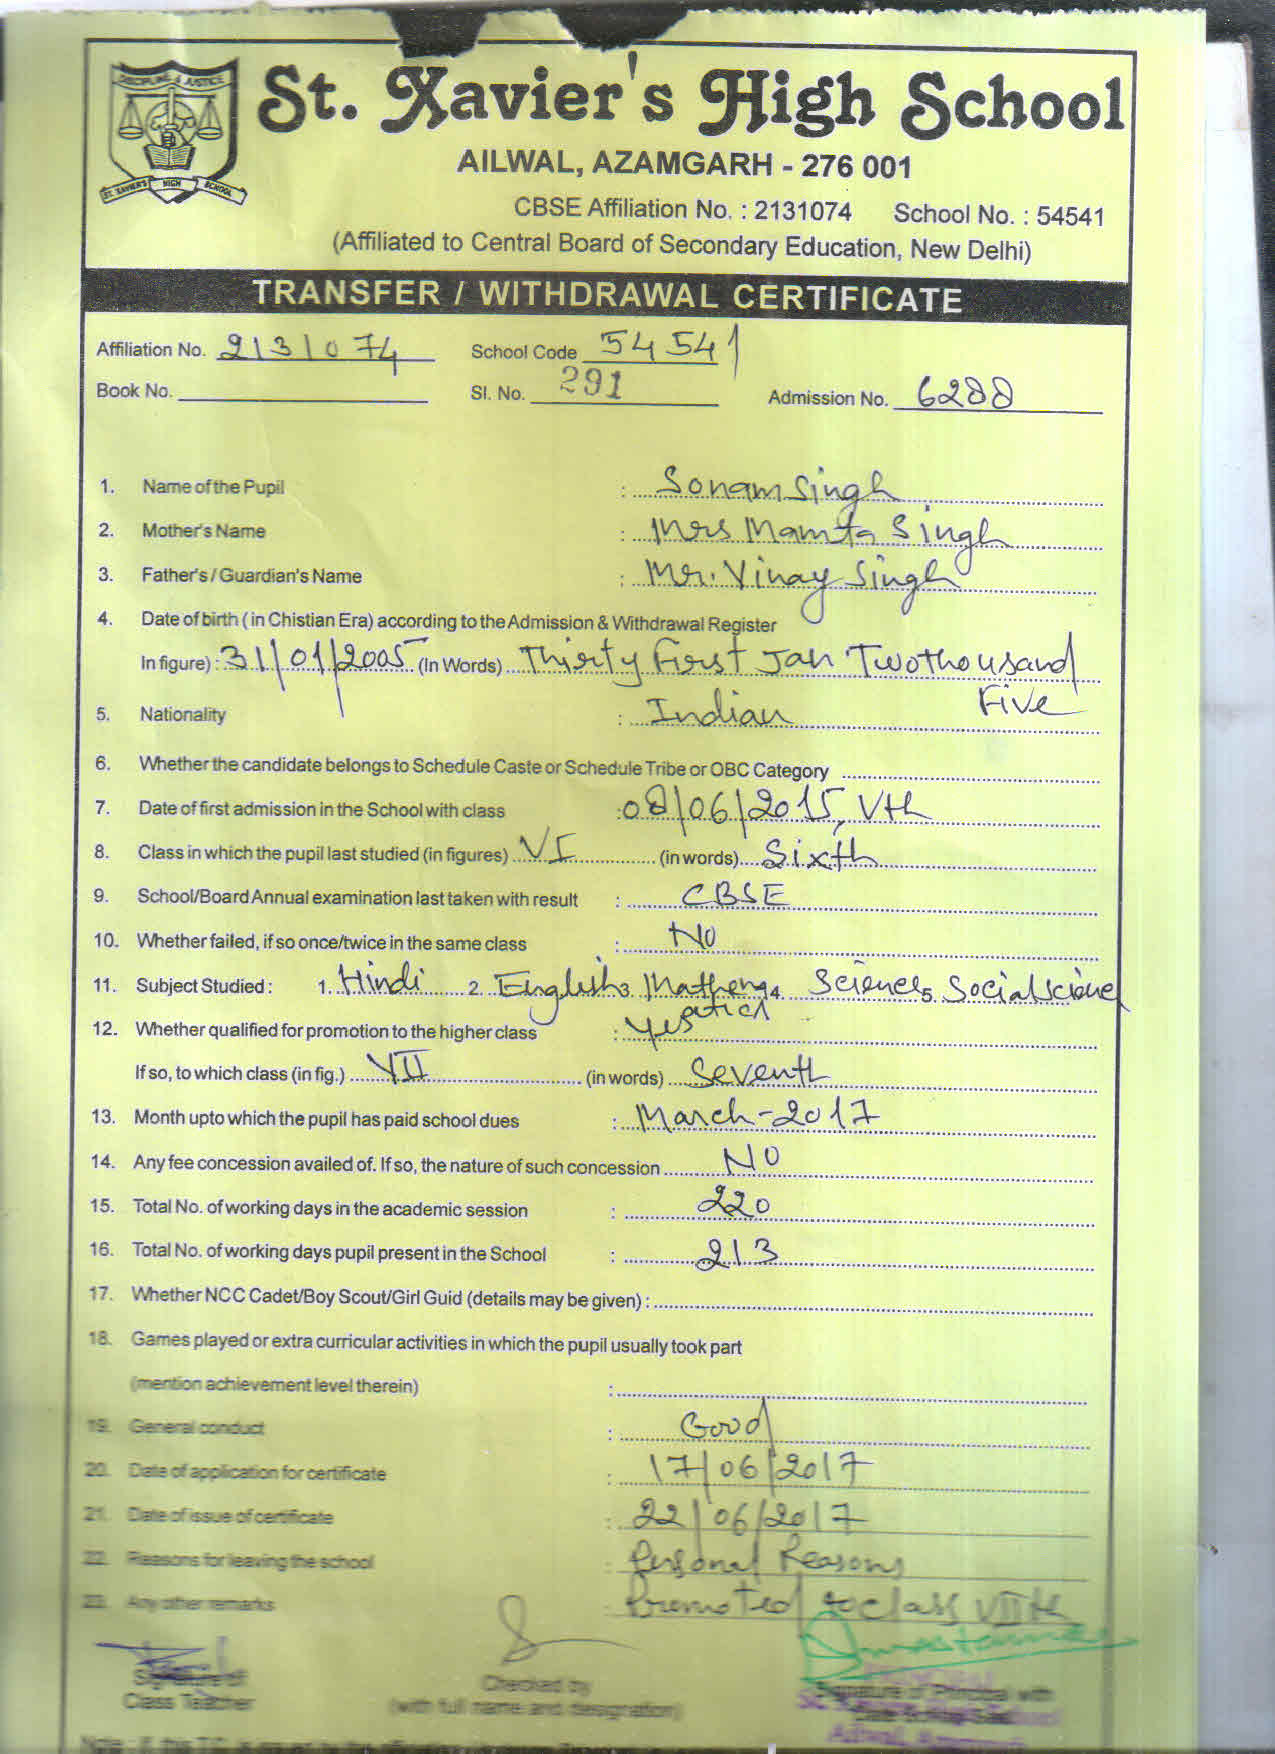 DISCIPLINE & JUSTICE
ST. XAVIER'S HIGH SCHOOL
St. Xavier's High School
AILWAL, AZAMGARH - 276 001
CBSE Affiliation No. : 2131074 School No. : 54541
(Affiliated to Central Board of Secondary Education, New Delhi)
TRANSFER / WITHDRAWAL CERTIFICATE
Affiliation No. 2131074 School Code 54541
Book No. Sl. No. 291 Admission No. 6288
1. Name of the Pupil : Sonam Singh
2. Mother's Name : Mrs Mamta Singh
3. Father's / Guardian's Name : Mr. Vinay Singh
4. Date of birth ( in Chistian Era) according to the Admission & Withdrawal Register
In figure) : 31/01/2005 (In Words) Thirty First Jan Two thousand
Five
5. Nationality : Indian
6. Whether the candidate belongs to Schedule Caste or Schedule Tribe or OBC Category
7. Date of first admission in the School with class : 08/06/2015, Vth
8. Class in which the pupil last studied (in figures) VI (in words) Sixth
9. School/Board Annual examination last taken with result : CBSE
10. Whether failed, if so once/twice in the same class : No
11. Subject Studied : 1. Hindi 2. English 3. Mathematics 4. Science 5. Social science
12. Whether qualified for promotion to the higher class : Yes
If so, to which class (in fig.) VII (in words) Seventh
13. Month upto which the pupil has paid school dues : March-2017
14. Any fee concession availed of. If so, the nature of such concession NO
15. Total No. of working days in the academic session : 220
16. Total No. of working days pupil present in the School : 213
17. Whether NCC Cadet/Boy Scout/Girl Guid (details may be given) :
18. Games played or extra curricular activities in which the pupil usually took part
(mention achievement level therein) :
19. General conduct : Good
20. Date of application for certificate : 17/06/2017
21. Date of issue of certificate : 22/06/2017
22. Reasons for leaving the school : Personal Reasons
23. Any other remarks : Promoted to class VIIth
Signature of Checked by Signature of Principal with
Class Teacher (with full name and designation)
Note : If this T.C. is issued by